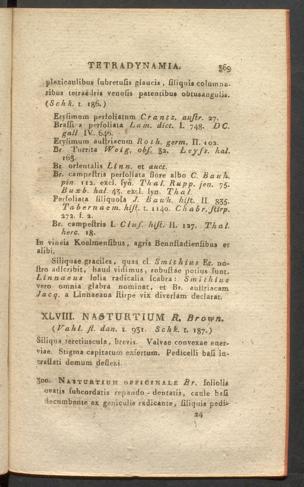 TETRADYNAMIA. 369
plexicaulibus subretusis glaucis, siliquis columna-
ribus tetraëdris venosis patentibus obtusangulis.
(Schk. t. 186.)
Erysimum perfoliatum Crantz. austr. 27.
Brassica perfoliata Lam. dict. I. 748. DC.
gall IV. 646.
Erysimum austriacum Roth. germ. II. 102.
Br. Turrita Weig. obs. 32. Leyss. hal.
163.
Br. orientalis Linn. et auct.
Br. campestris perfoliata flore albo C. Bauh.
pin 112. excl. syn. Thal. Rupp. jen. 75.
Buxb. hal 43. excl. syn. Thal.
Perfoliata siliquosa J. Bauh. hist. II. 835.
Tabernaem. hist. t. 1140. Chabr. stirp.
272. f. 2.
Br. campestris I. Clus. hist. II. 127. Thal.
herc. 18.
In vineis Koolmensibus, agris Bennstadiensibus et
alibi.
Siliquae graciles, quas cl. Smithius Er. no-
stro adscribit, haud vidimus, robustae potius sunt.
Linnaeus folia radicalia scabra: Smithius
vero omnia glabra nominat, et Br. austriacam
Jacq. a Linnaeana stirpe vix diversam declarat.
XLVIII. NASTURTIUM R. Brown.
(Vahl. fl. dan. t. 931. Schk. t. 187.)
Siliqua teretiuscula, brevis. Valvae convexae ener-
viae. Stigma capitatum exsertum. Pedicelli basi in-
crassati demum deflexi.
300. NASTURTIUM OFFICINALE Br. foliolis
ovatis subcordatis repando-dentatis, caule basi
decumbente ex geniculis radicante, siliquis pedi-
24